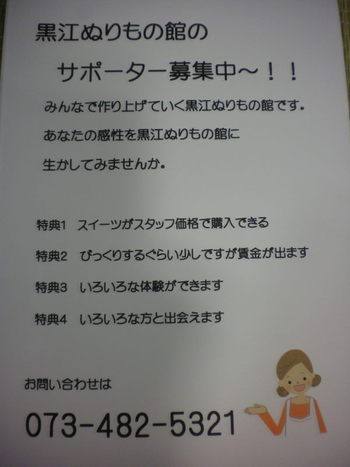 黒江ぬりもの館の
サポーター募集中～！！
みんなで作り上げていく黒江ぬりもの館です。
あなたの感性を黒江ぬりもの館に
生かしてみませんか。
特典1 スイーツがスタッフ価格で購入できる
特典2 びっくりするぐらい少しですが賃金が出ます
特典3 いろいろな体験ができます
特典4 いろいろな方と出会えます
お問い合わせは
073-482-5321